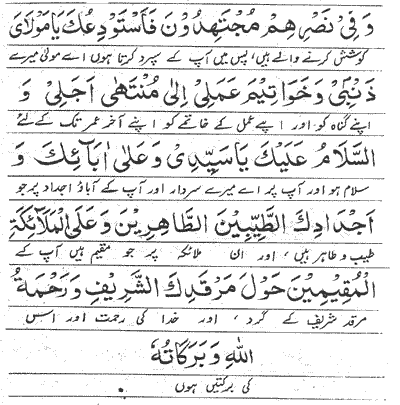 وَ فِیْ نَصْرِهِمْ مُجْتَهِدُوْنَ فَاَسْتَوْدِعُكَ یَا مَوْلَایَ
کوشش کرنے والے ہیں، پس میں آپ کے سپرد کرتا ہوں اے مولیٰ میرے
ذَنْبِیْ وَ خَوَاتِیْمَ عَمَلِیْ اِلٰی مُنْتَهٰی اَجَلِیْ وَ
اپنے گناہ کو اور اپنے عمل کے خاتمے کو اپنے آخر عمر تک کے لئے
السَّلَامُ عَلَیْكَ یَا سَیِّدِیْ وَ عَلٰی اٰبَائِكَ وَ
سلام ہو اور آپ پر اے میرے سردار اور آپ کے آباؤ اجداد پر جو
اَجْدَادِكَ الطَّیِّبِیْنَ الطَّاهِرِیْنَ وَ عَلَی الْمَلَآئِكَةِ
طیب و طاہر ہیں، اور ان ملائکہ پر جو مقیم ہیں آپ کے
الْمُقِیْمِیْنَ حَوْلَ مَرْقَدِكَ الشَّرِیْفِ وَ رَحْمَةُ
مرقد شریف کے گرد، اور خدا کی رحمت اور اس
اللهِ وَ بَرَكَاتُهٗ
کی برکتیں ہوں